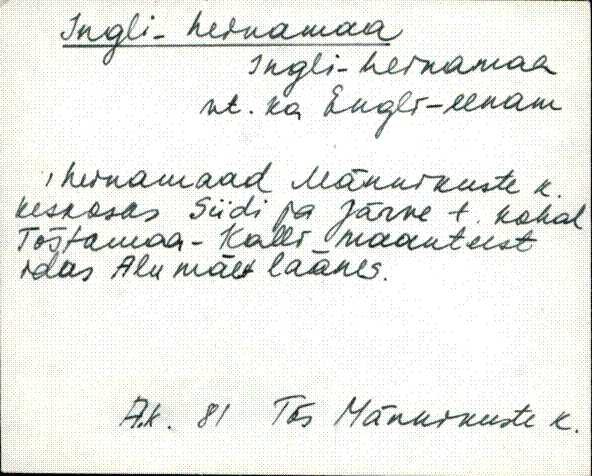 Ingli-heinamaa
Ingli-heinamaa
vt. ka Engli-eenam
, heinamaad Männikuste k.
keskosas Siidi ja Järve t. kohal
Tõstamaa-Kalli maanteest
idas Alumäe läänes.
A.k. 81 Tõs Männikuste k.